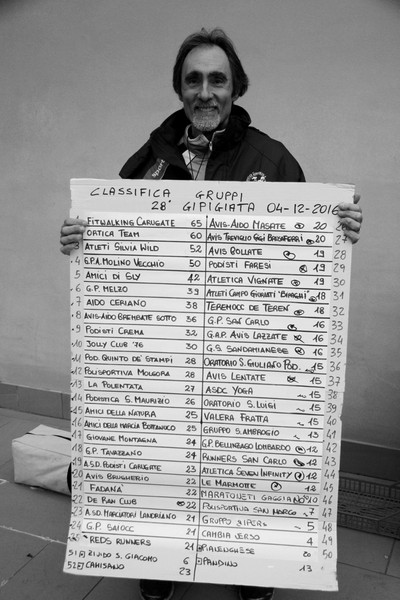 CLASSIFICA GRUPPI
28° GIPIGIATA 04-12-2016
1 FITWALKING CARUGATE 65 AVIS-AIDO MASATE 20
ORTICA TEAM 60 AVIS TREVIGLIO GIGI BRUSAFERRI 20
ATLETI SILVIA WILD 52 AVIS BOLLATE 19
4 G.P.A. MOLINO VECCHIO 50 PODISTI FARESI 19 29
5 AMICI DI SLY 42 ATLETICA VIGNATE 19 30
6 G.P. MELZO 39 ATLETI CAMPO GIOVANI "BRAGHIN" 18 31
7 AIDO CERIANO 38 TEREMOCC DE TEREN 18 32
8 AVIS-AIDO BREMBATE SOTTO 36 G.P. SAN CARLO 16 33
9 PODISTI CREMA 32 G.A.P. AVIS LAZZATE 16 34
10 JOLLY CLUB '76 30 G.S. SANDAMIANESE 16 35
11 POD. QUINTO DE' STAMPI 28 ORATORIO S. GIULIANO POD. 15 36
12 POLISPORTIVA MOLGORA 28 AVIS LENTATE 15 37
13 LA POLENTATA 27 ASDC YOGA 15 38
14 PODISTICA S. MAURIZIO 26 ORATORIO S. LUIGI 15 39
15 AMICI DELLA NATURA 25 VALERA FRATTA 15 40
16 AMICI DELLA MARCIA BOTTANUCO 25 GRUPPO S. AMBROGIO 13 41
17 GIOVANE MONTAGNA 24 G.P. BELLINZAGO LOMBARDO 12 42
18 G.P. TAVAZZANO 24 RUNNERS SAN CARLO 12 43
19 A.S.D. PODISTI CARUGATE 23 ATLETICA SEVEN INFINITY 12 44
20 AVIS BRUGHERIO 22 LE MARMOTTE 12 45
21 FADANA 22 MARATONETI GAGGIANO 10 46
22 DE RAN CLUB 22 POLISPORTIVA SAN NORGO 7 47
23 ASD MARCIATORI LANDRIANO 21 GRUPPO VIPERS 5 48
24 G.P. SAIOCC 21 CAMBIA VERSO 4 49
25 REDS RUNNERS 21 PIALENGHESE 50
51 S. GIACOMO 6 PANDINO 13
52 CAMISANO 23